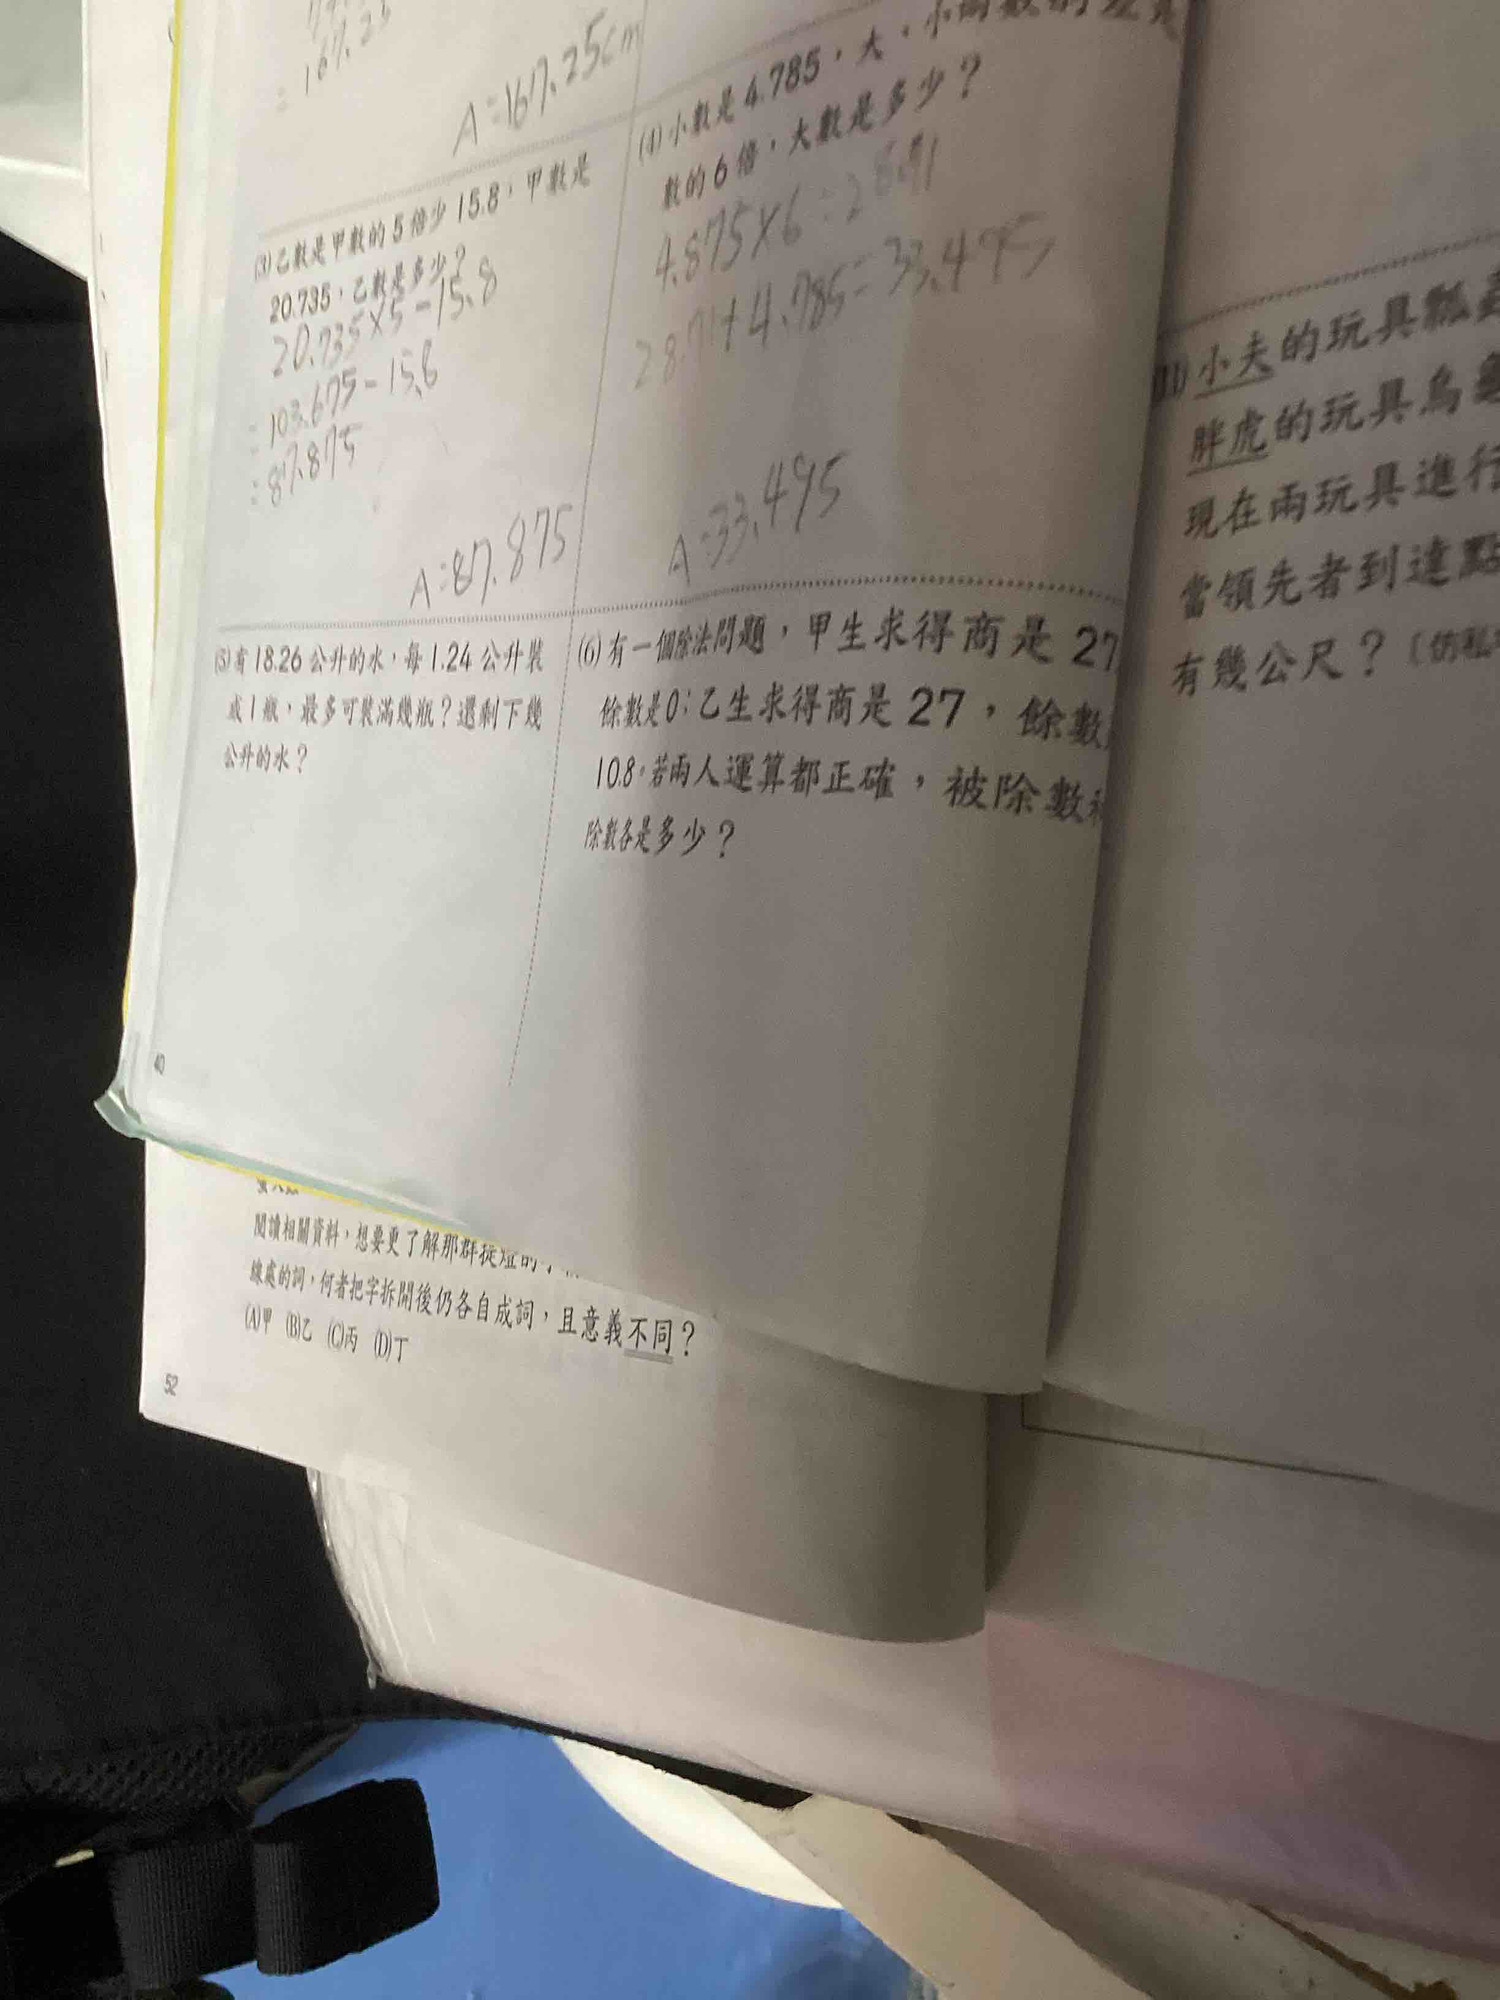 = 167.25
A:167.25cm
(3)乙數是甲數的5倍少15.8,甲數是
20.735,乙數是多少?
20.735×5-15.8
=103.675-15.8
=87.875
A:87.875
(4)小數是4.785,大、小兩數的差是
數的6倍,大數是多少?
4.875×6=28.71
28.71+4.785=33.495
A:33.495
(5)有18.26公升的水,每1.24公升裝
成1瓶,最多可裝滿幾瓶?還剩下幾
公升的水?
(6)有一個除法問題,甲生求得商是27
餘數是0;乙生求得商是27,餘數
10.8。若兩人運算都正確,被除數和
除數各是多少?
40
小夫的玩具瓢蟲
胖虎的玩具烏龜
現在兩玩具進行
當領先者到達點
有幾公尺?〔仿私
閱讀相關資料,想要更了解那群
線處的詞,何者把字拆開後仍各自成詞,且意義不同?
(A)甲 (B)乙 (C)丙 (D)丁
52